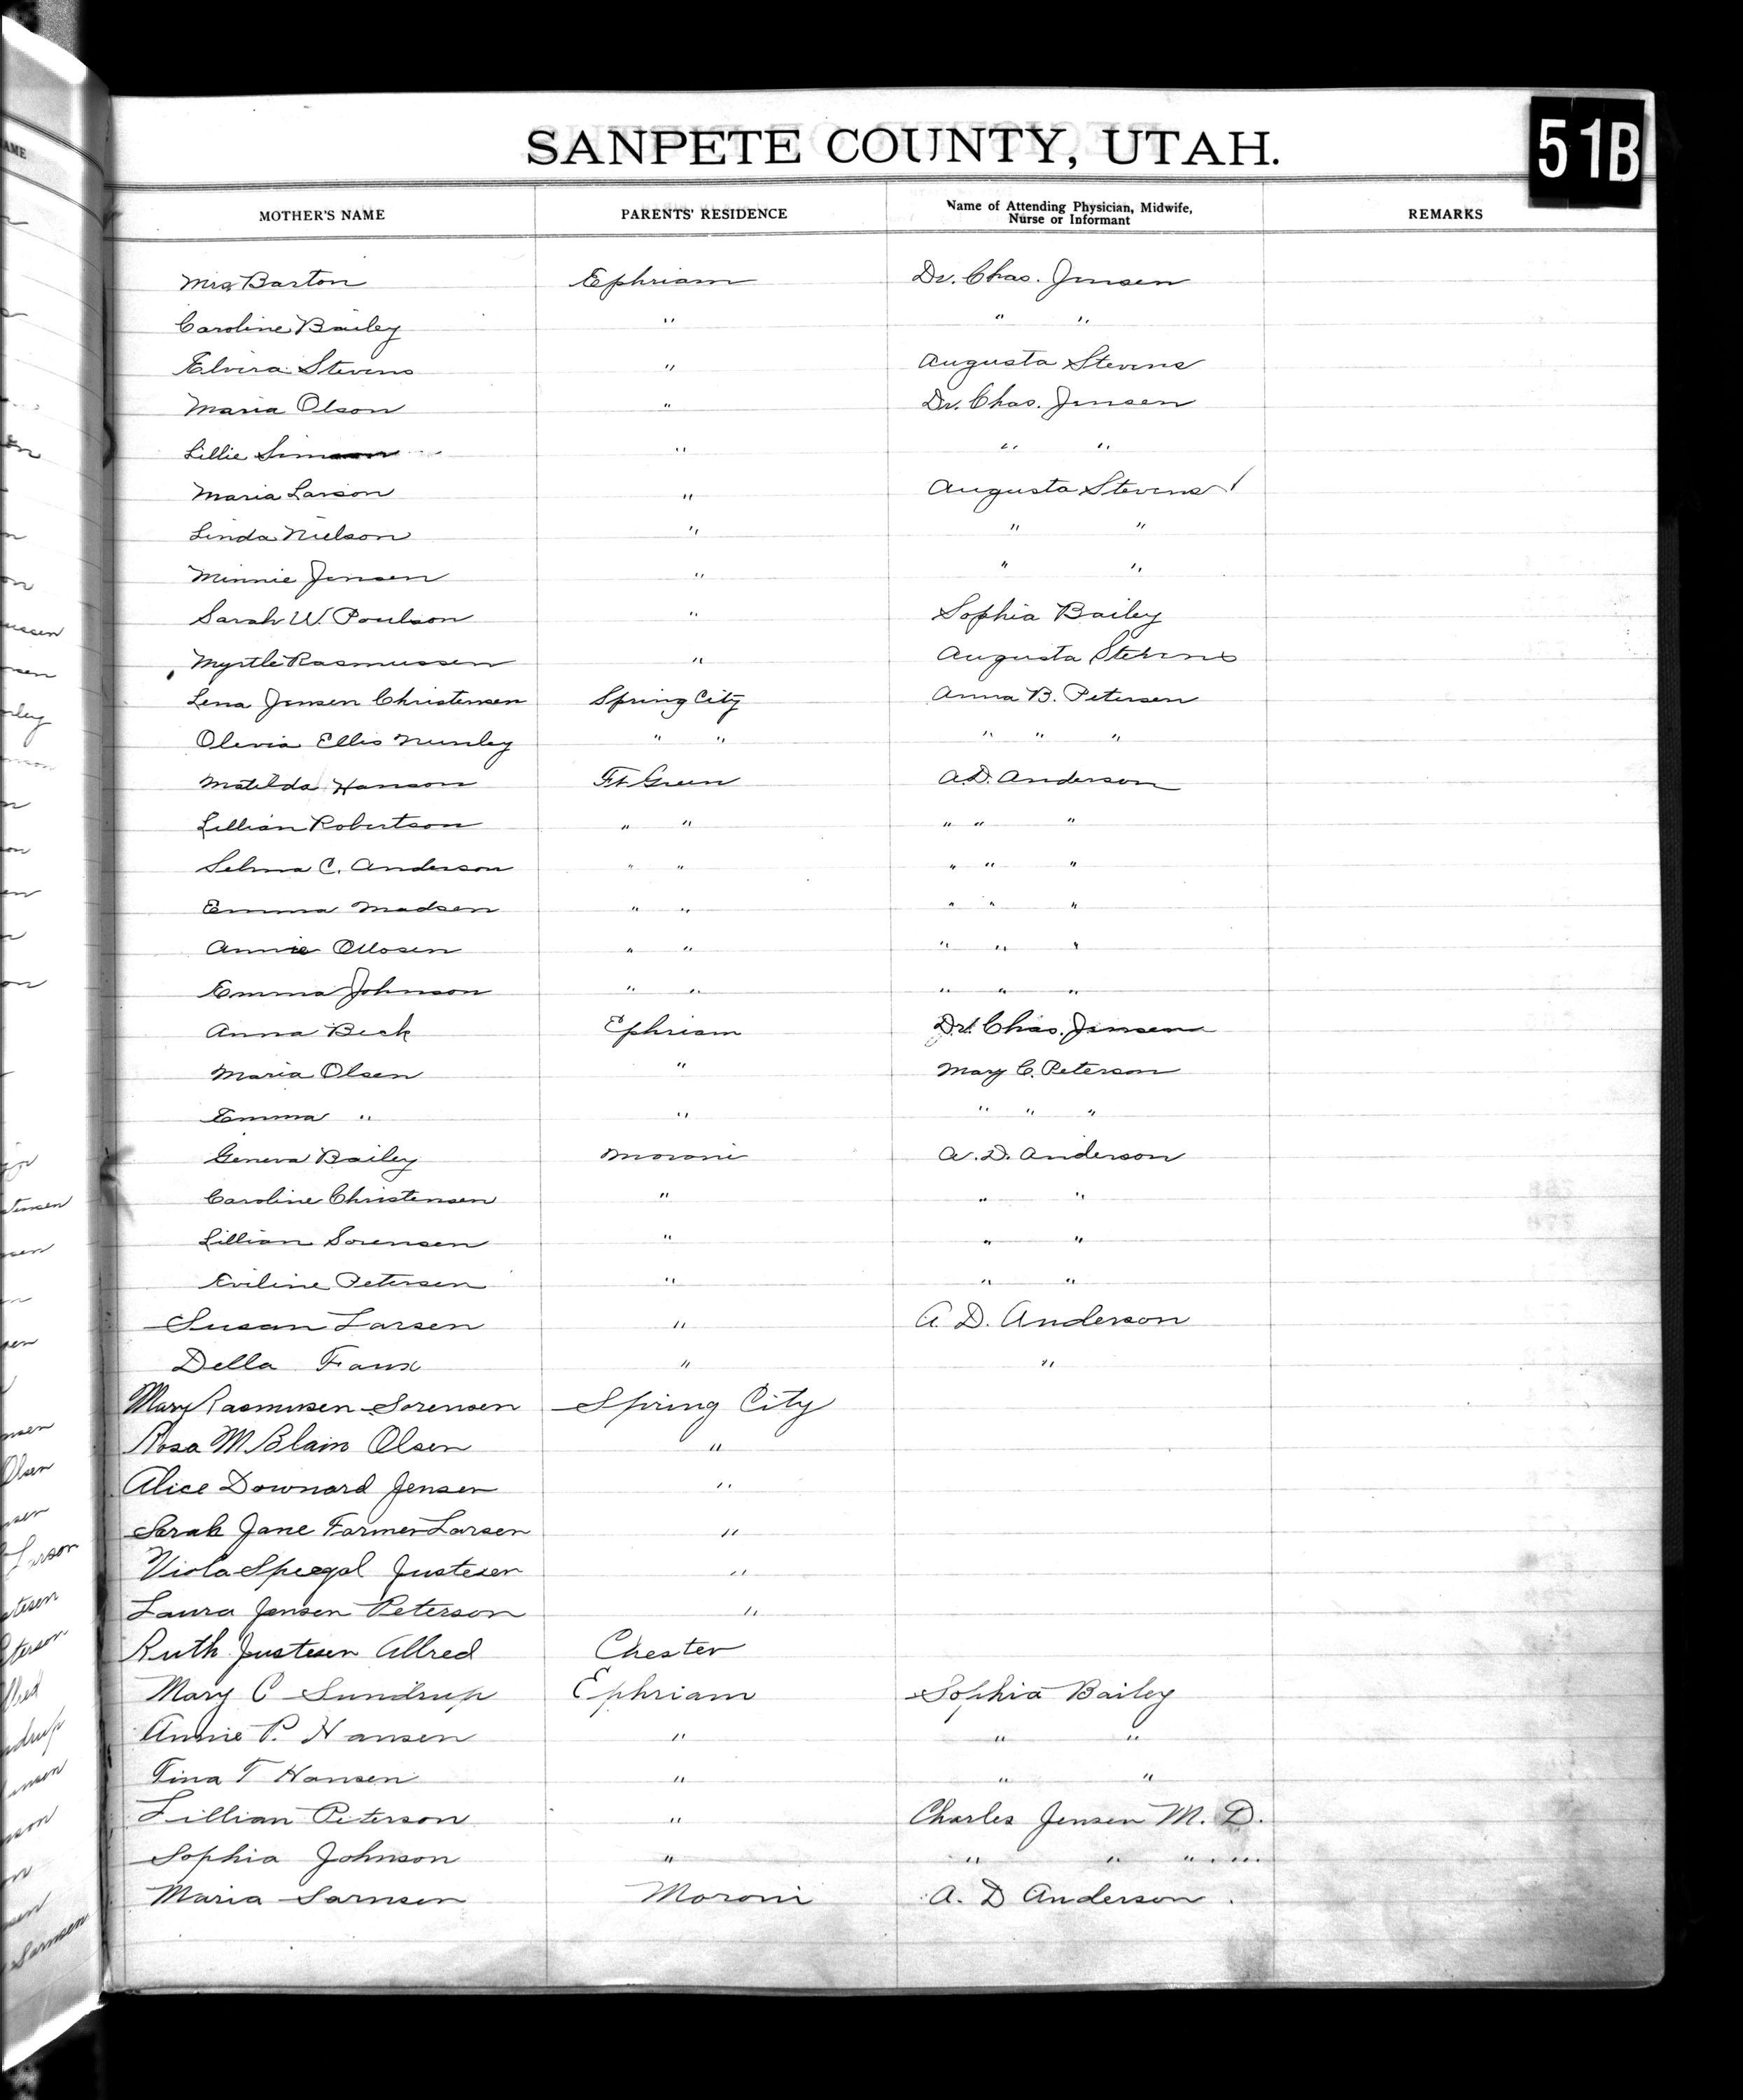 SANPETE COUNTY, UTAH.
51B
MOTHER'S NAME PARENTS' RESIDENCE Name of Attending Physician, Midwife, Nurse or Informant REMARKS
Mrs Barton Ephriam Dr. Chas. Jensen
Caroline Bailey " " "
Elvira Stevens " Augusta Stevens
Maria Olson " Dr. Chas. Jensen
Lillie " " "
Maria Larson " Augusta Stevens
Linda Nielson " " "
Minnie Jensen " " "
Sarah W. Poulson " Sophia Bailey
Myrtle Rasmussen " Augusta Stevens
Lena Jensen Christensen Spring City Anna B. Petersen
Olevia Ellis Nunley " " " " "
Matilda Hanson Ft. Green A.D. Anderson
Lillian Robertson " " " " "
Selma C. Anderson " " " " "
Emma Madsen " " " " "
Annie Ollosen " " " " "
Emma Johnson " " " " "
Anna Beck Ephriam Dr. Chas. Jensen
Maria Olsen " Mary C. Peterson
Emma " " " " "
Geneva Bailey Moroni A. D. Anderson
Caroline Christensen " " "
Lillian Sorensen " " "
Eviline Petersen " " "
Susan Larsen " A. D. Anderson
Della Faux " "
Mary Rasmusen Sorensen Spring City
Rosa M. Blain Olsen "
Alice Downard Jensen "
Sarah Jane Farmer Larsen "
Viola Spiegal Justesen "
Laura Jensen Peterson "
Ruth Justesen Allred Chester
Mary C Sundrup Ephriam Sophia Bailey
Annie P. Hansen " " "
Tina T Hansen " " "
Lillian Peterson " Charles Jensen M. D.
Sophia Johnson " " " " "
Maria Sarnsen Moroni A. D Anderson.